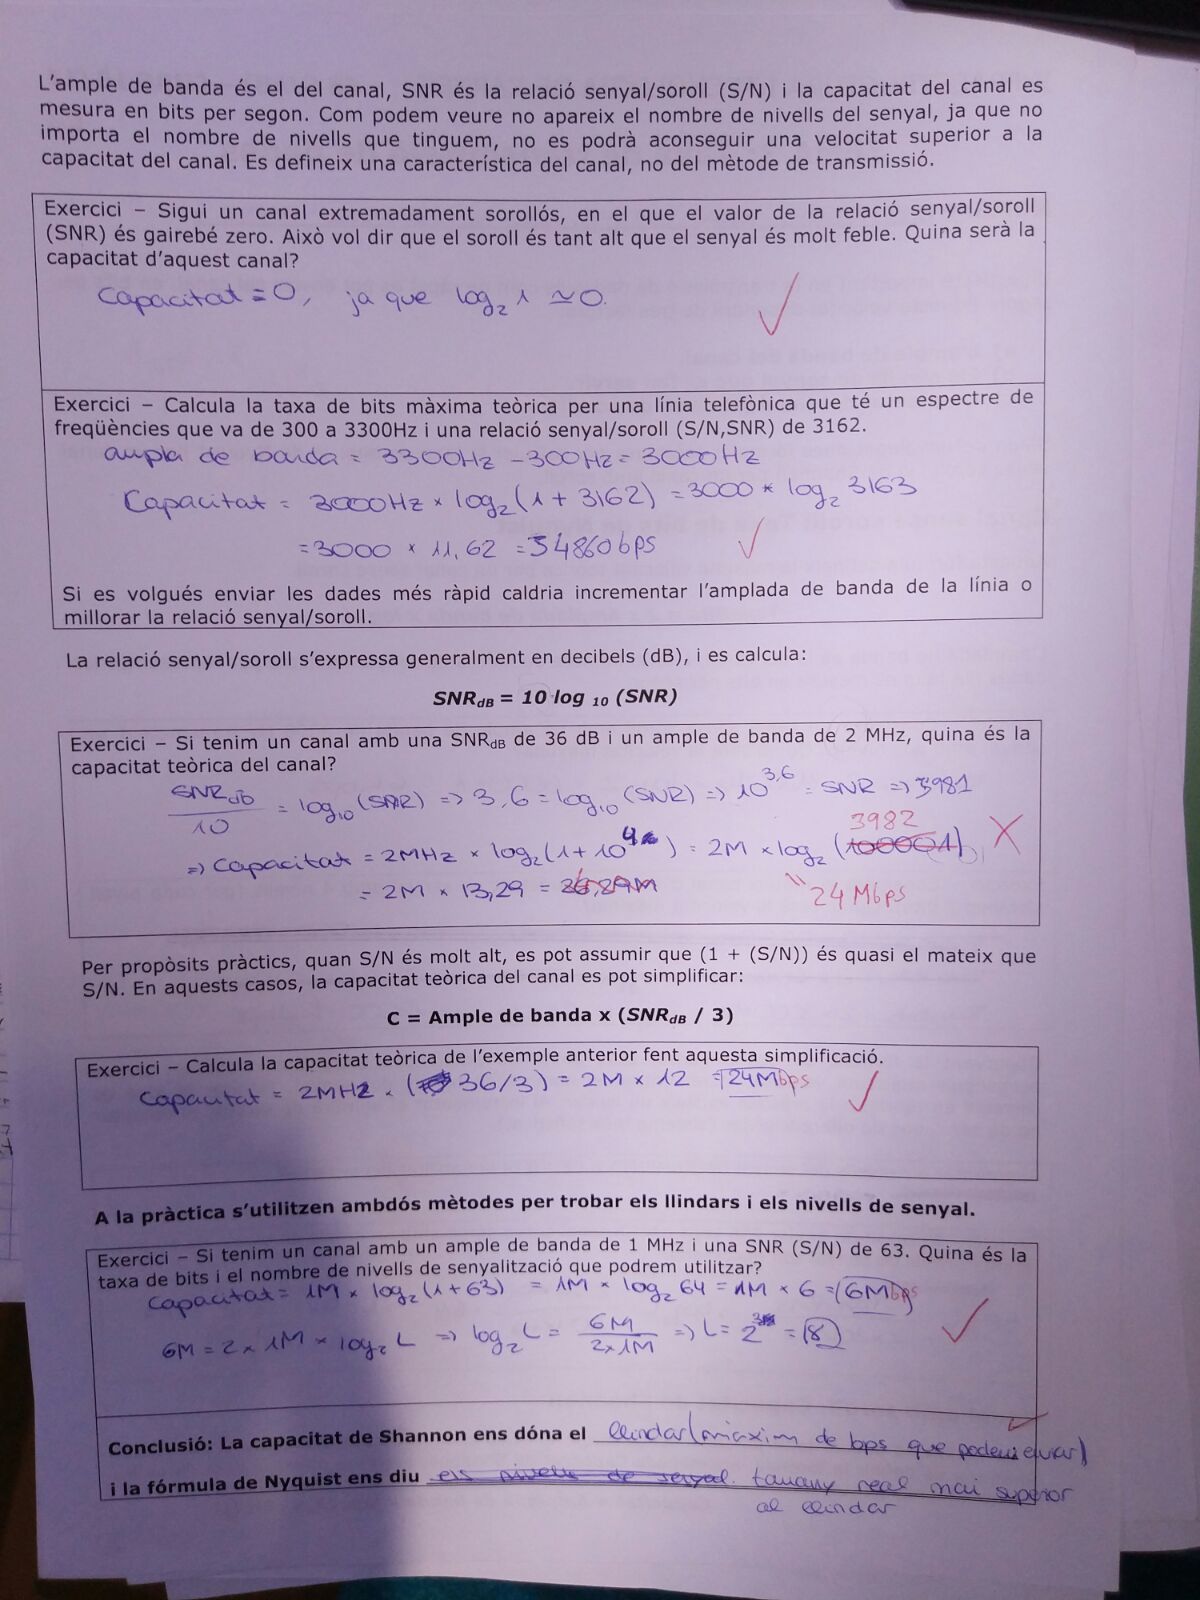 L'ample de banda és el del canal, SNR és la relació senyal/soroll (S/N) i la capacitat del canal es
mesura en bits per segon. Com podem veure no apareix el nombre de nivells del senyal, ja que no
importa el nombre de nivells que tinguem, no es podrà aconseguir una velocitat superior a la
capacitat del canal. Es defineix una característica del canal, no del mètode de transmissió.
Exercici – Sigui un canal extremadament sorollós, en el que el valor de la relació senyal/soroll
(SNR) és gairebé zero. Això vol dir que el soroll és tant alt que el senyal és molt feble. Quina serà la
capacitat d'aquest canal?
Capacitat = 0, ja que log₂ 1 ≃ 0.
Exercici – Calcula la taxa de bits màxima teòrica per una línia telefònica que té un espectre de
freqüències que va de 300 a 3300Hz i una relació senyal/soroll (S/N,SNR) de 3162.
ampla de banda = 3300Hz - 300Hz = 3000Hz
Capacitat = 3000Hz × log₂(1 + 3162) = 3000 * log₂ 3163
= 3000 × 11,62 = 34860bps
Si es volgués enviar les dades més ràpid caldria incrementar l'amplada de banda de la línia o
millorar la relació senyal/soroll.
La relació senyal/soroll s'expressa generalment en decibels (dB), i es calcula:
SNRdB = 10 log 10 (SNR)
Exercici – Si tenim un canal amb una SNRdB de 36 dB i un ample de banda de 2 MHz, quina és la
capacitat teòrica del canal?
SNRdb/10 = log₁₀(SNR) => 3,6 = log₁₀(SNR) => 10^3,6 = SNR => 3981
3982
=> Capacitat = 2MHz × log₂(1+10^4) = 2M × log₂(10001)
= 2M × 13,29 = 26,29M
24 Mbps
Per propòsits pràctics, quan S/N és molt alt, es pot assumir que (1 + (S/N)) és quasi el mateix que
S/N. En aquests casos, la capacitat teòrica del canal es pot simplificar:
C = Ample de banda x (SNRdB / 3)
Exercici – Calcula la capacitat teòrica de l'exemple anterior fent aquesta simplificació.
Capacitat = 2MHz × (36/3) = 2M × 12 = 24Mbps
A la pràctica s'utilitzen ambdós mètodes per trobar els llindars i els nivells de senyal.
Exercici – Si tenim un canal amb un ample de banda de 1 MHz i una SNR (S/N) de 63. Quina és la
taxa de bits i el nombre de nivells de senyalització que podrem utilitzar?
Capacitat = 1M × log₂(1+63) = 1M × log₂ 64 = 1M × 6 = 6Mbps
6M = 2 × 1M × log₂ L => log₂ L = 6M/2×1M => L = 2^3 = 8
Conclusió: La capacitat de Shannon ens dóna el llindar (màxim de bps que podem enviar)
i la fórmula de Nyquist ens diu els nivells de senyal. tamany real mai superior
al llindar